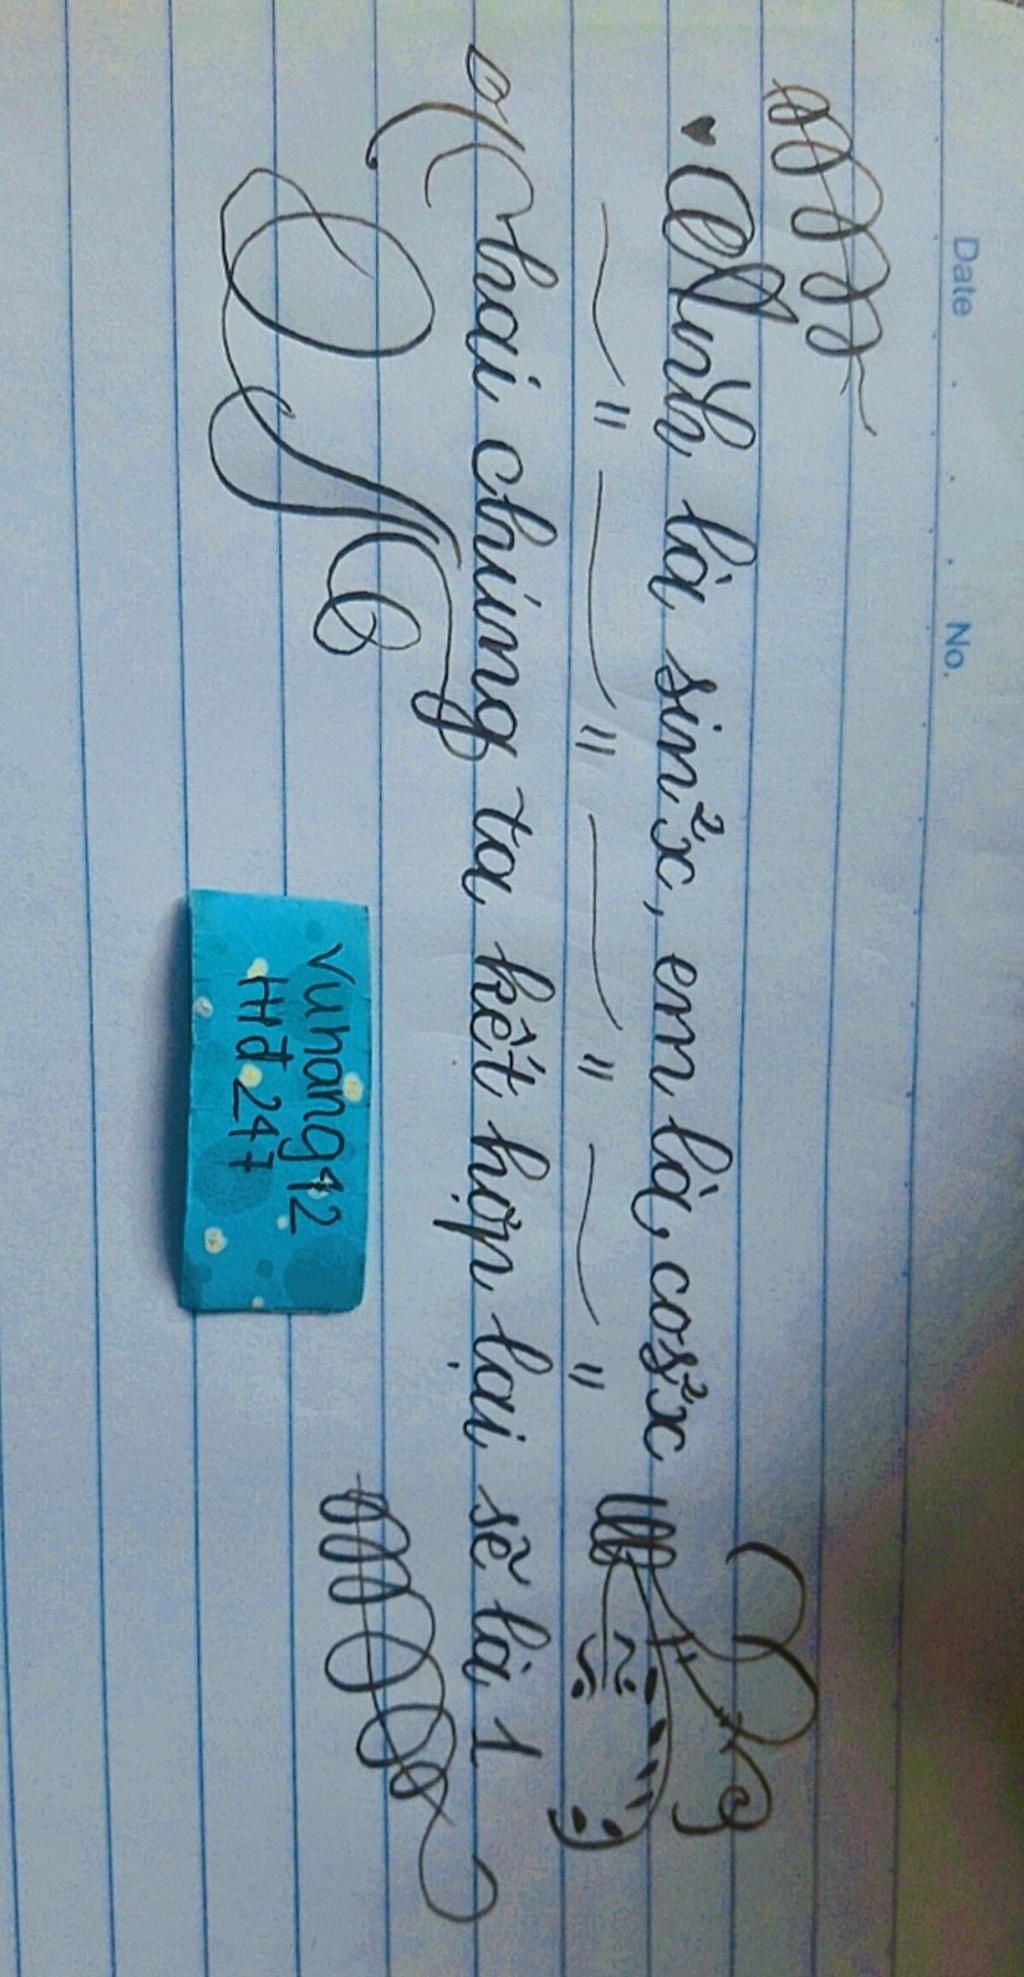 Date No.
Anh là sin²x, em là cos²x
" " " "
hai chúng ta kết hợp lại sẽ là 1
vuhang12
Hđ 247